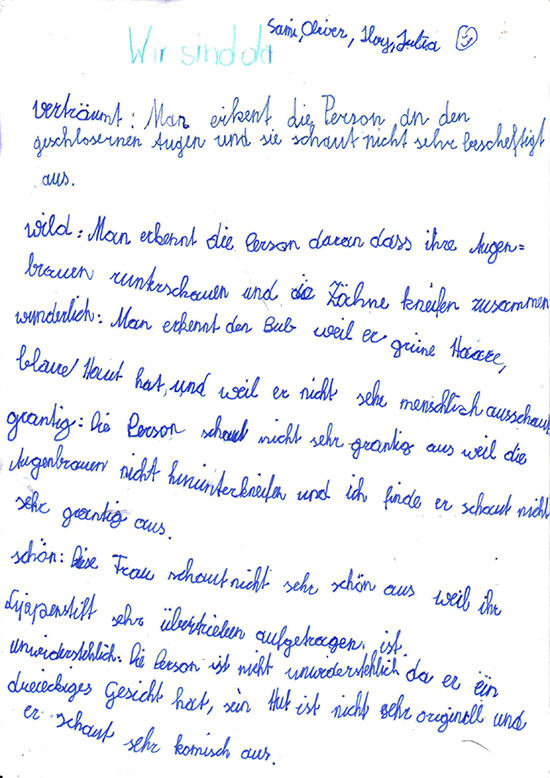 Sami, Oliver, Iloy, Julia
Wir sind da
verträumt: Man erkent die Person an den
geschlosernen Augen und sie schaut nicht sehr bescheftigt
aus.
wild: Man erkennt die Person daran dass ihre Augen=
brauen runterschauen und die Zächne kneifen zusammen
wunderlich: Man erkennt den Bub weil er grüne Haare,
blaue Haut hat, und weil er nicht sehr menschlich ausschaut
grantig: Die Person schaut nicht sehr grantig aus weil die
Augenbrauen nicht hinunterkneifen und ich finde er schaut nicht
sehr grantig aus.
schön: Diese Frau schaut nicht sehr schön aus weil ihr
Lippenstift sehr übertrieben aufgetragen ist.
unwiderstehlich: Die Person ist nicht unwiderstehlich da er ein
dreieckiges Gesicht hat, sein Hut ist nicht sehr originell und
er schaut sehr komisch aus.